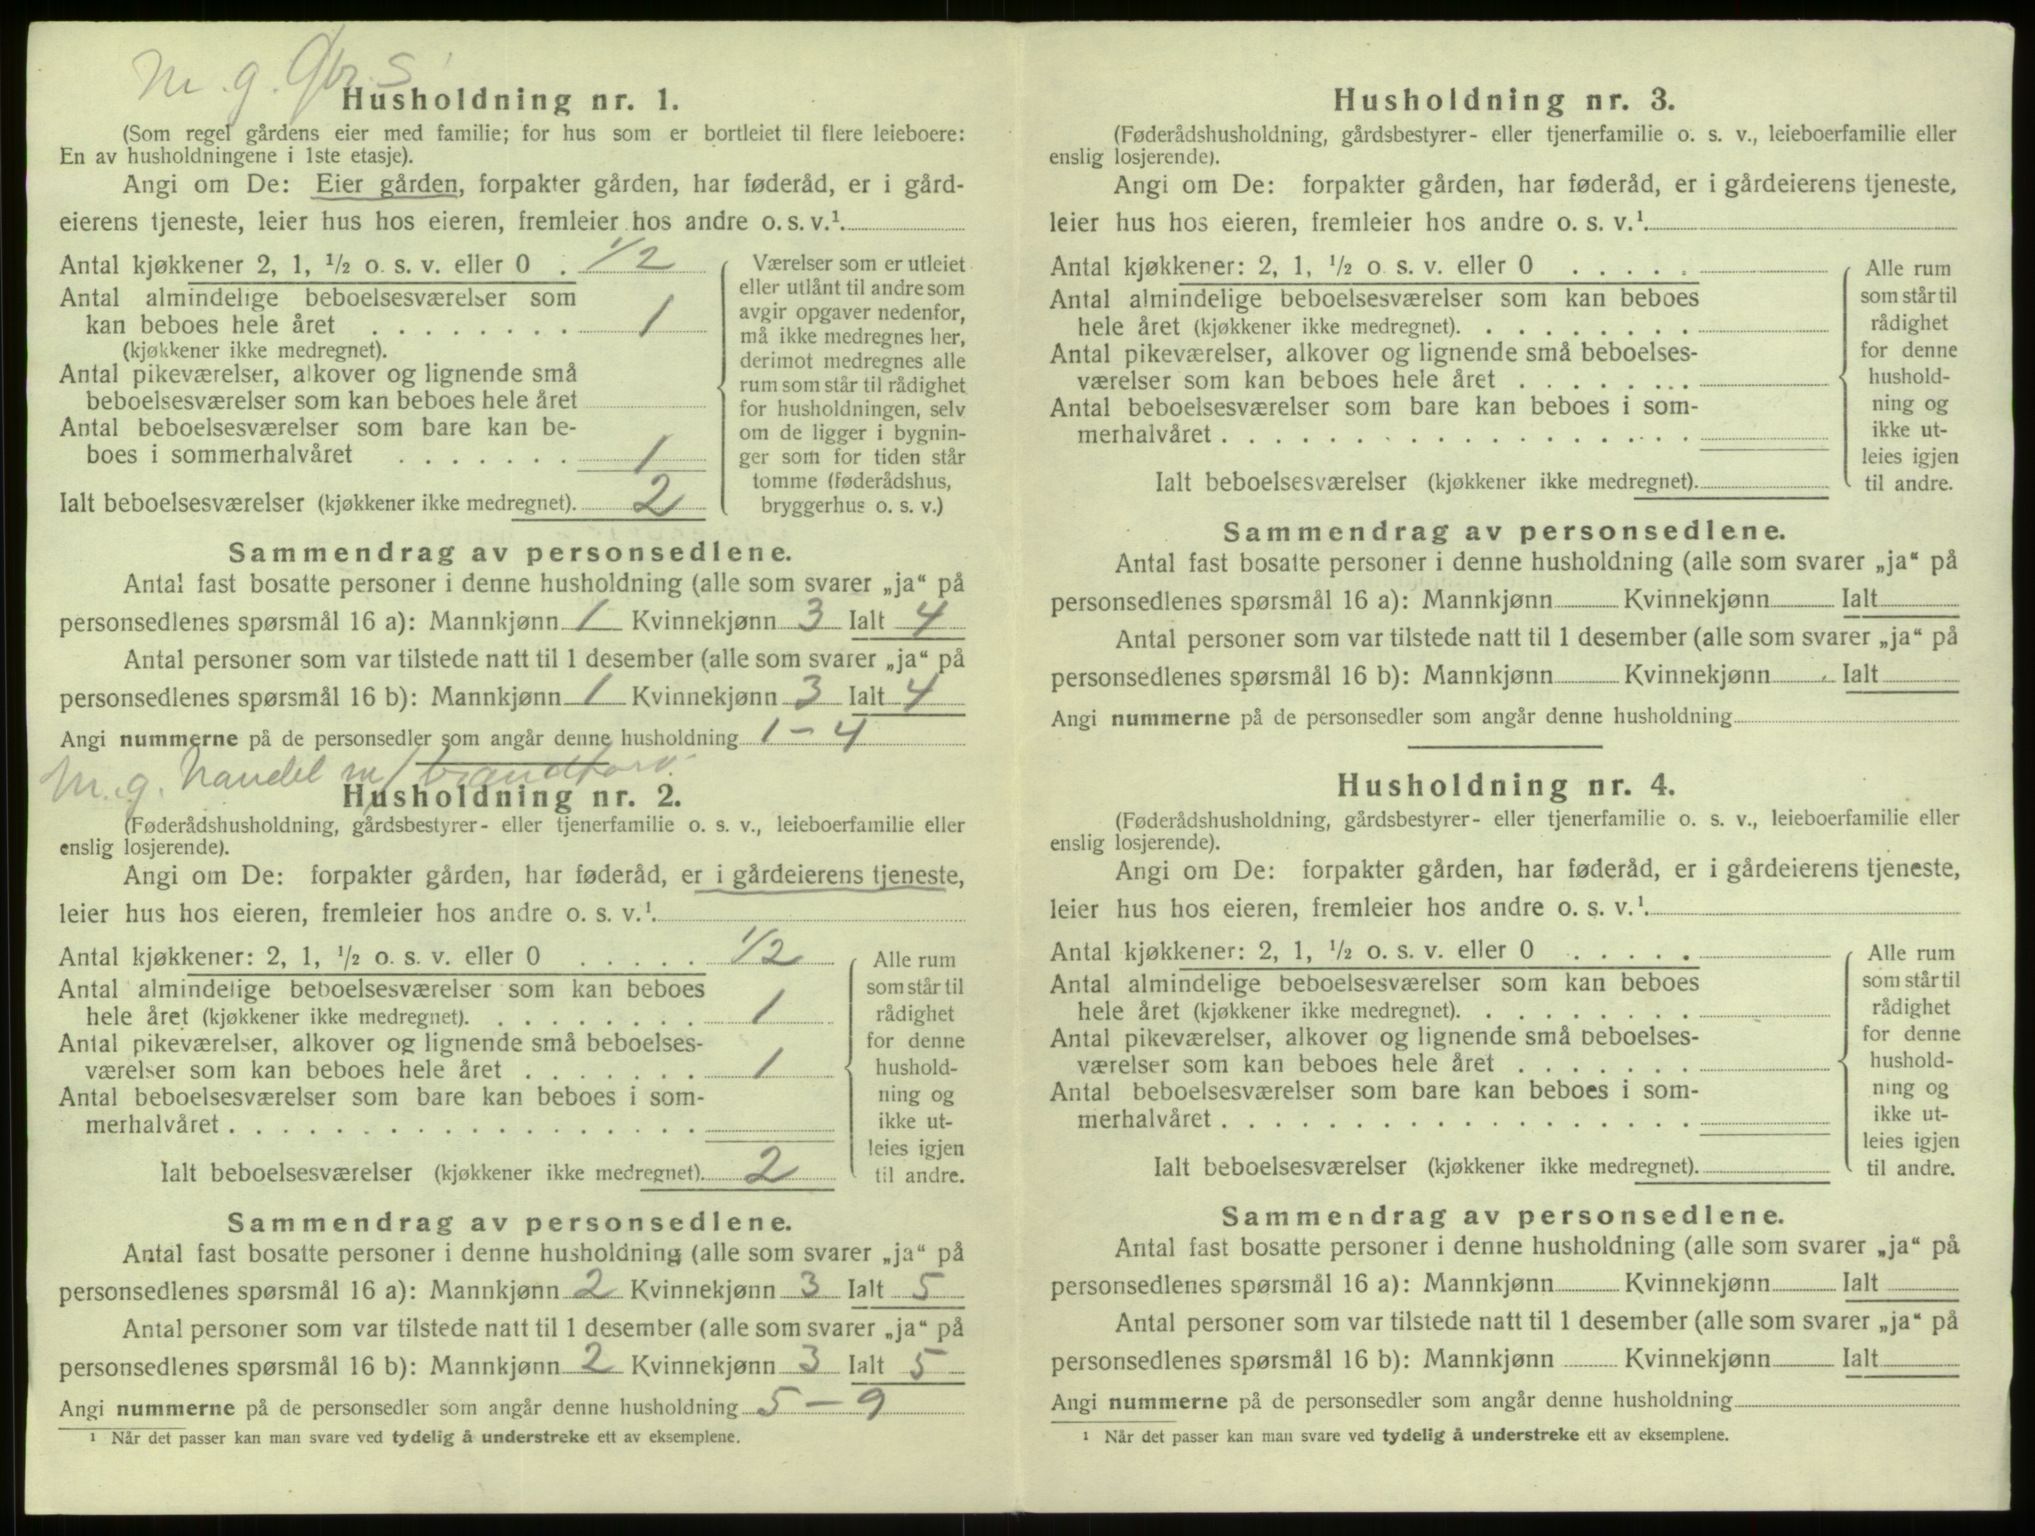 m. g. Gbr.s
Husholdning nr. 1.
(Som regel gårdens eier med familie; for hus som er bortleiet til flere leieboere:
En av husholdningene i 1ste etasje).
Angi om De: Eier gården, forpakter gården, har føderåd, er i gård-
eierens tjeneste, leier hus hos eieren, fremleier hos andre o. s. v.¹
Antal kjøkkener 2, 1, ½ o. s. v. eller 0 . 1/2
Antal almindelige beboelsesværelser som
kan beboes hele året . . . . . . . . 1
(kjøkkener ikke medregnet).
Antal pikeværelser, alkover og lignende små
beboelsesværelser som kan beboes hele året
Antal beboelsesværelser som bare kan be-
boes i sommerhalvåret . . . . . . . 1
Ialt beboelsesværelser (kjøkkener ikke medregnet). 2
Værelser som er utleiet
eller utlånt til andre som
avgir opgaver nedenfor,
må ikke medregnes her,
derimot medregnes alle
rum som står til rådighet
for husholdningen, selv
om de ligger i bygnin-
ger som for tiden står
tomme (føderådshus,
bryggerhus o. s. v.)
Sammendrag av personsedlene.
Antal fast bosatte personer i denne husholdning (alle som svarer „ja“ på
personsedlenes spørsmål 16 a): Mannkjønn 1 Kvinnekjønn 3 Ialt 4
Antal personer som var tilstede natt til 1 desember (alle som svarer „ja“ på
personsedlenes spørsmål 16 b): Mannkjønn 1 Kvinnekjønn 3 Ialt 4
Angi nummerne på de personsedler som angår denne husholdning 1 – 4
m. g. handel m/ brandtorv.
Husholdning nr. 2.
(Føderådshusholdning, gårdsbestyrer- eller tjenerfamilie o. s. v., leieboerfamilie eller
enslig losjerende).
Angi om De: forpakter gården, har føderåd, er i gårdeierens tjeneste,
leier hus hos eieren, fremleier hos andre o. s. v.¹.
Antal kjøkkener: 2, 1, ½ o. s. v. eller 0 . . . . . 1/2
Antal almindelige beboelsesværelser som kan beboes
hele året (kjøkkener ikke medregnet). . . . . . . . . 1
Antal pikeværelser, alkover og lignende små beboelses-
værelser som kan beboes hele året . . . . . . . 1
Antal beboelsesværelser som bare kan beboes i som-
merhalvåret . . . . . . . . . . . . . . . . . .
Ialt beboelsesværelser (kjøkkener ikke medregnet). 2
Alle rum
som står til
rådighet
for denne
hushold-
ning og
ikke ut-
leies igjen
til andre.
Sammendrag av personsedlene.
Antal fast bosatte personer i denne husholdning (alle som svarer „ja“ på
personsedlenes spørsmål 16 a): Mannkjønn 2 Kvinnekjønn 3 Ialt 5
Antal personer som var tilstede natt til 1 desember (alle som svarer „ja“ på
personsedlenes spørsmål 16 b): Mannkjønn 2 Kvinnekjønn 3 Ialt 5
Angi nummerne på de personsedler som angår denne husholdning 5 – 9
¹ Når det passer kan man svare ved tydelig å understreke ett av eksemplene.
Husholdning nr. 3.
(Føderådshusholdning, gårdsbestyrer- eller tjenerfamilie o. s. v., leieboerfamilie eller
enslig losjerende).
Angi om De: forpakter gården, har føderåd, er i gårdeierens tjeneste,
leier hus hos eieren, fremleier hos andre o. s. v.¹.
Antal kjøkkener: 2, 1, ½ o. s. v. eller 0 . . . . .
Antal almindelige beboelsesværelser som kan beboes
hele året (kjøkkener ikke medregnet). . . . . . . . .
Antal pikeværelser, alkover og lignende små beboelses-
værelser som kan beboes hele året . . . . . . .
Antal beboelsesværelser som bare kan beboes i som-
merhalvåret . . . . . . . . . . . . . . . . . .
Ialt beboelsesværelser (kjøkkener ikke medregnet).
Alle rum
som står til
rådighet
for denne
hushold-
ning og
ikke ut-
leies igjen
til andre.
Sammendrag av personsedlene.
Antal fast bosatte personer i denne husholdning (alle som svarer „ja“ på
personsedlenes spørsmål 16 a): Mannkjønn Kvinnekjønn Ialt
Antal personer som var tilstede natt til 1 desember (alle som svarer „ja“ på
personsedlenes spørsmål 16 b): Mannkjønn Kvinnekjønn Ialt
Angi nummerne på de personsedler som angår denne husholdning
Husholdning nr. 4.
(Føderådshusholdning, gårdsbestyrer- eller tjenerfamilie o. s. v., leieboerfamilie eller
enslig losjerende).
Angi om De: forpakter gården, har føderåd, er i gårdeierens tjeneste,
leier hus hos eieren, fremleier hos andre o. s. v.¹.
Antal kjøkkener: 2, 1, ½ o. s. v. eller 0 . . . . .
Antal almindelige beboelsesværelser som kan beboes
hele året (kjøkkener ikke medregnet). . . . . . . . .
Antal pikeværelser, alkover og lignende små beboelses-
værelser som kan beboes hele året . . . . . . .
Antal beboelsesværelser som bare kan beboes i som-
merhalvåret . . . . . . . . . . . . . . . . . .
Ialt beboelsesværelser (kjøkkener ikke medregnet).
Alle rum
som står til
rådighet
for denne
hushold-
ning og
ikke ut-
leies igjen
til andre.
Sammendrag av personsedlene.
Antal fast bosatte personer i denne husholdning (alle som svarer „ja“ på
personsedlenes spørsmål 16 a): Mannkjønn Kvinnekjønn Ialt
Antal personer som var tilstede natt til 1 desember (alle som svarer „ja“ på
personsedlenes spørsmål 16 b): Mannkjønn Kvinnekjønn Ialt
Angi nummerne på de personsedler som angår denne husholdning
¹ Når det passer kan man svare ved tydelig å understreke ett av eksemplene.